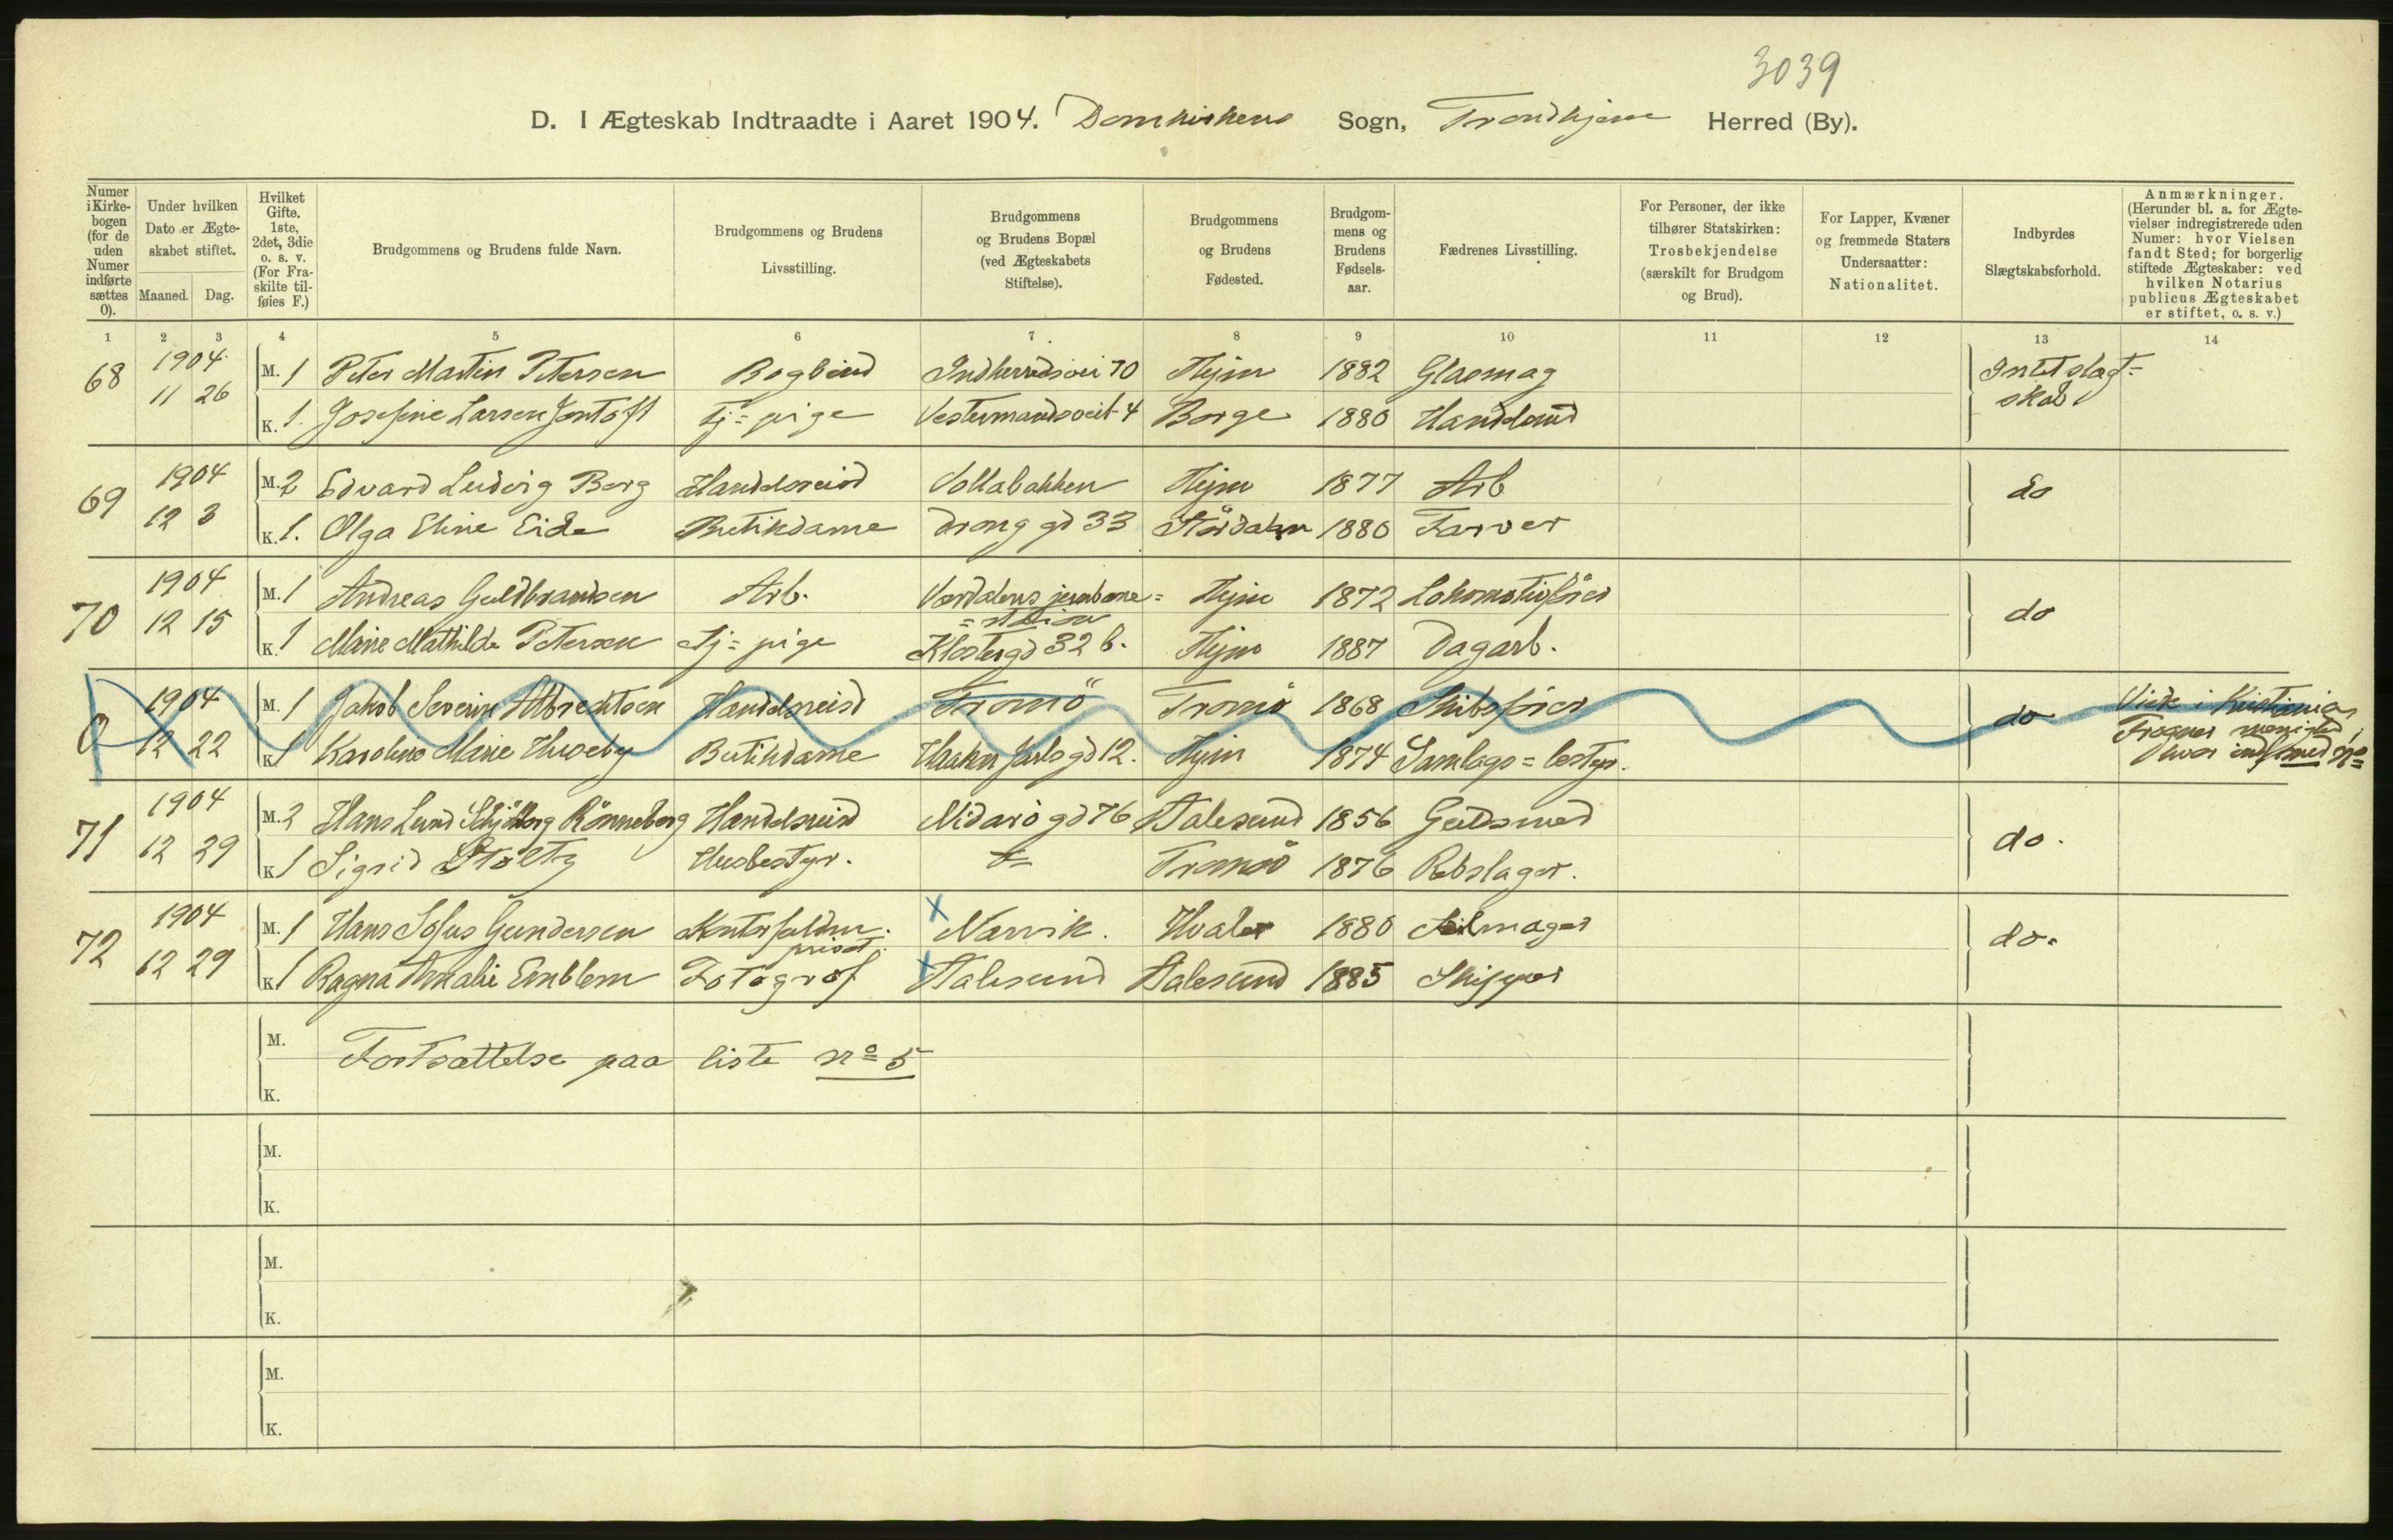 3039
D. I Ægteskab Indtraadte i Aaret 1904. Domkirkens Sogn, Trondhjem Herred (By).
Numer i Kirkebogen (for de uden Numer indførte sættes 0).
Under hvilken Dato er Ægteskabet stiftet.
Maaned. Dag.
Hvilket Gifte. 1ste, 2det, 3die o. s. v. (For Fraskilte tilføies F.)
Brudgommens og Brudens fulde Navn.
Brudgommens og Brudens Livsstilling.
Brudgommens og Brudens Bopæl (ved Ægteskabets Stiftelse).
Brudgommens og Brudens Fødested.
Brudgommens og Brudens Fødselsaar.
Fædrenes Livsstilling.
For Personer, der ikke tilhører Statskirken: Trosbekjendelse (særskilt for Brudgom og Brud).
For Lapper, Kvæner og fremmede Staters Undersaatter: Nationalitet.
Indbyrdes Slægtskabsforhold.
Anmærkninger. (Herunder bl. a. for Ægtevielser indregistrerede uden Numer: hvor Vielsen fandt Sted; for borgerlig stiftede Ægteskaber: ved hvilken Notarius publicus Ægteskabet er stiftet, o. s. v.)
1 2 3 4 5 6 7 8 9 10 11 12 13 14
68 1904 11 26
M. 1 Peter Martin Petersen Bogbind Indherredsvei 70 Thjm 1882 Glasmag Intet slægt=skab
K. 1. Josefine Larsen Jentoft Tj=pige Vestermandsveit 4 Borge 1880 Handelsmd
69 1904 12 3
M. 2 Edvard Ludvig Berg Handelsreisd Vollabakken Thjm 1877 Arb do
K. 1. Olga Eline Eide Butikdame Drong gd 33 Størdalen 1880 Farver
70 1904 12 15
M. 1 Andreas Guldbrandsen Arb. Værdalens jernbane=station Thjm 1872 Lokomotivfører do
K. 1 Marie Mathilde Petersen Tj=pige Klostergd 32 b. Thjm 1887 Dagarb.
0 1904 12 22
M. 1 Jakob Severin Albrechtsen Handelsreisd Tromsö Tromsö 1868 Skibsfører do Viede i Kristiania, Frogner menighed, hvor indf med No
K. 1 Karoline Marie Huseby Butikdame Haakn Jarls gd 12. Thjm 1874 Samlags=bestyr.
71 1904 12 29
M. 2 Hans Lund Schjölberg Rönneberg Handelsreisd Nidarö gd 76 Aalesund 1856 Guldsmed do.
K. 1 Sigrid Stöltz Husbestyr. do Tromsö 1876 Rebslager.
72 1904 12 29
M. 1 Hans Sofus Gundersen Kontorfuldm. privat. x Narvik. Hvaler 1880 Seilmager do.
K. 1 Ragna Amalie Emblem Fotograf x Aalesund Aalesund 1885 Skipper
M. Fortsættelse paa liste no 5
K.
M.
K.
M.
K.
M.
K.